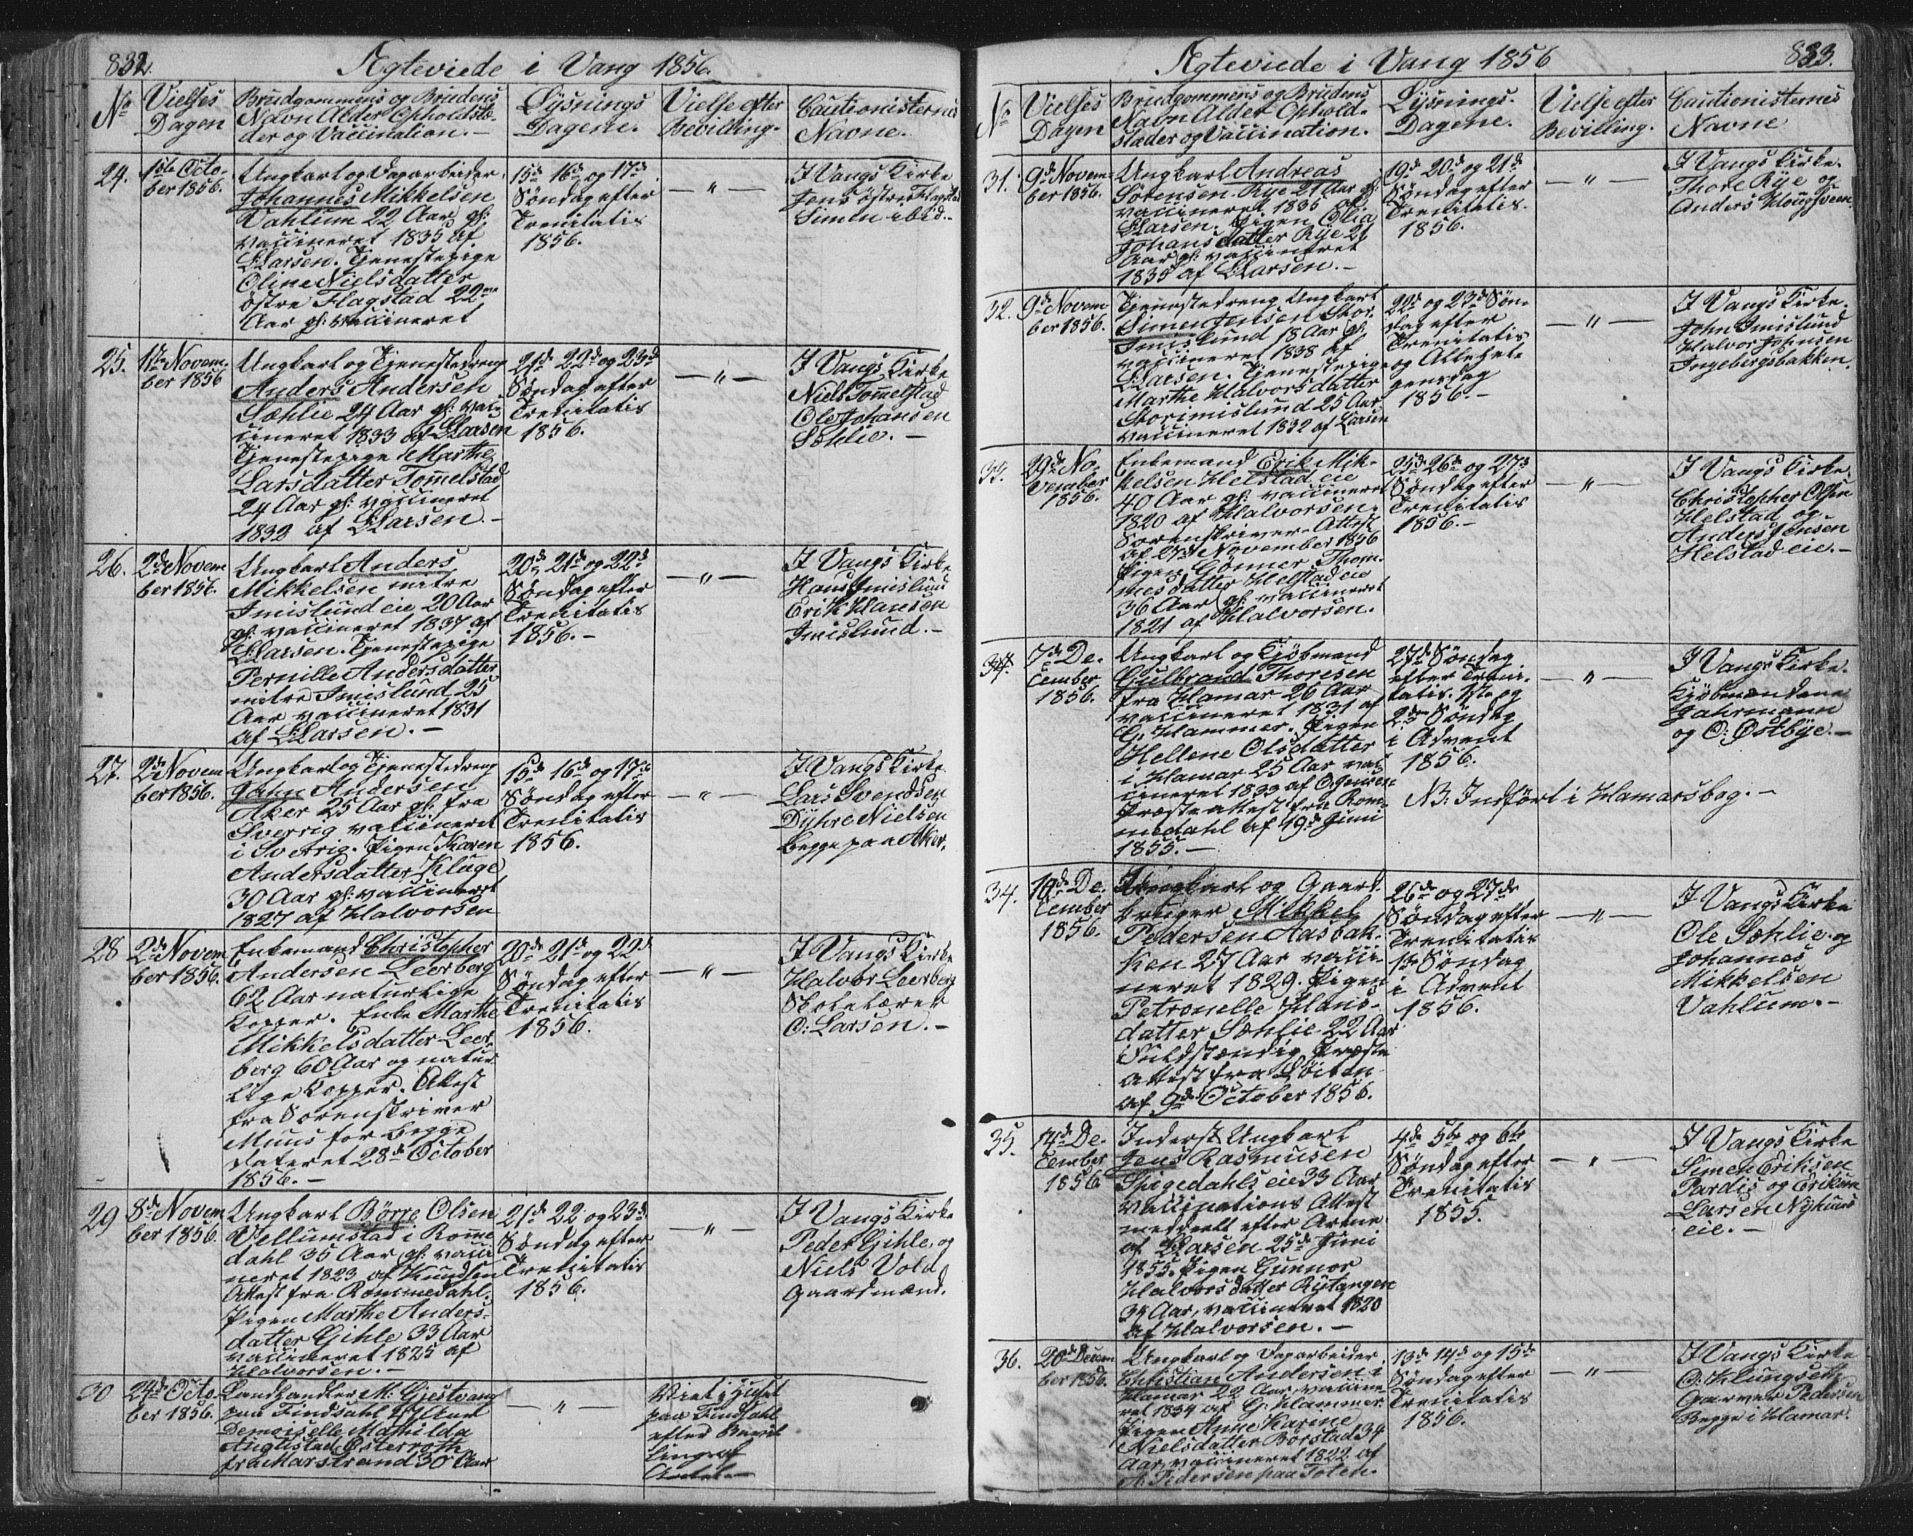 832.
Ægteviede i Vang 1856.
No
Vielses Dagen
Brudgommens og Brudens
Navn Alder Opholdste-
der og Vaccination.
Lysnings
Dagene.
Vielse efter
Bevilling.
Cautionisternes
Navne.
24.
1ste Octo-
ber 1856.
Ungkarl og
Johannes Mikkelsen
Vahlum 22 Aar gl:
vaccineret 1835 af
Larsen. Tjenestepige
Oline Nielsdatter
østre Flagstad 22
Aar gl: vaccineret
15de 16de og 17de
Søndag efter
Trenitatis
1856.
— " —
I Vangs Kirke
Jens østre Flagstad
Simen ibid. —
25.
1ste Novem-
ber 1856
Ungkarl og Tjenestedreng
Anders Andersen
Sæhlie 24 Aar gl: vac-
cineret 1833 af Larsen
Tjenestepige Marthe
Larsdatter Tommelstad
24 Aar gl: vaccineret
1833 af Larsen. —
21de 22de og 23de
Søndag efter
Trenitatis
1856.
— " —
I Vangs Kirke
Niels Tommelstad
Ole Johansen
Sæhlie. —
26.
2de Novem
ber 1856.
Ungkarl Anders
Mikkelsen mitre
Imislund eie 20 Aar
gl: vaccineret 1837 af
Larsen. Tjenestepige
Pernille Andersdatter
mitre Imislund 25
Aar vaccineret 1831
af Larsen. —
20de 21de og 22de
Søndag efter
Trenitatis
1856. —
— " —
I Vangs Kirke
Hans Imislund
Erik Hansen
Imislund. —
27.
2de Novem
ber 1856.
Ungkarl og Tjenestedreng
Jahn Andersen
Aker 25 Aar gl: fra
Sverrig vaccineret
i Sverrig. Pigen Karen
Andersdatter Kluge
30 Aar gl: vaccineret
1827 af Halvorsen
15de 16de og 17de
Søndag efter
Trenitatis
1856.
— " —
I Vangs Kirke
Lars Svendsen
Dyhre Nielsen
begge paa Aker.
28
2de Novem
ber 1856.
Enkemand Christopher
Andersen Leerberg
62 Aar naturlige
Kopper. Enke Marthe
Mikkelsdatter Leer-
berg 60 Aar og natur-
lige Kopper. Attest
fra Sorenskriver
Muus for begge
dateret 28de October
1856. —
20de 21de og 22de
Søndag efter
Trenitatis
1856.
— " —
I Vangs Kirke
Halvor Leerberg
Skolelærer
O: Larsen. —
29
8de Novem
ber 1856.
Ungkarl Børre Olsen
Vellumstad i Romme
dahl 35 Aar gl: vacci
neret 1823 af Knudsen
Attest fra Rommedahl.
Pigen Marthe Anders-
datter Gihle 33 Aar
vaccineret 1825 af
Halvorsen. —
21de 22 og 23de
Søndag efter
Trenitatis
1856.
— " —
I Vangs Kirke
Peder Gihle, og
Niels Vold
Gaardmænd.
30
24de Octo-
ber 1856.
Landhandler M: Gjestvang
paa Findsahl
Demoiselle Mathilda
Augustad Østerroth
fra Marstrand 30 Aar
— " —
Viet i Huset
paa Findsahl
efter
833.
Ægteviede i Vang 1856
No
Vielses
Dagen
Brudgommens og Brudens
Navn Alder Ophold-
stader og Vaccination.
Lysnings-
Dagene.
Vielse efter
Bevilling.
Cautionisternes
Navne
31.
9de Novem-
ber 1856.
Ungkarl Andreas
Sørensen Rye 21 Aar gl:
vaccineret 1835 af
Larsen. Pigen Olia
Johansdatter Rye 21
Aar gl: vaccineret
1835 af Larsen. —
19de 20de og 21de
Søndag efter
Trenitatis.
1856.
— " —
I Vangs Kirke.
Thore Rye og
Anders Hougsveen
32.
9de Novem-
ber 1856.
Tjenestedreng Ungkarl
Simen Jensen Stor-
Imislund 18 Aar gl:
vaccineret 1838 af
Larsen. Tjenestepige
Marthe Halvorsdatter
Storimislund 25 Aar
vaccineret 1832 af Larsen
22de og 23de Søn-
dag efter
Trenitatis
og Allehel-
gensdag
1856. —
— " —
I Vangs Kirke.
John Imislund
Halvor Johnsen
Ingebergsbakken.
33.
29de No-
vember
1856.
Enkemand Erik Mik-
kelsen Helstad eie
40 Aar gl: vaccineret
1820 af Halvorsen.
Sorenskriver Attest
af 27de November 1856
Pigen Gønner Thom-
mesdatter Helstad eie
36 Aar gl: vaccineret
1821 af Halvorsen.
25de 26de og 27de
Søndag efter
Trenitatis
1856. —
— " —
I Vangs Kirke.
Christopher Olsen
Helstad og
Anders Jensen
Helstad eie. —
7de De-
cember
1856.
Ungkarl og Kjøbmand
Gulbrand Thoresen
fra Hamar 26 Aar
vaccineret 1831 af
G: Hammer. Pigen
Hellene Olsdatter
i Hamar 25 Aar vac
cineret 1833 af
Præste Attest fra Rom-
medahl af 19de Juni
1855. —
27de Søndag
efter Treni-
tatis. 1ste og
2de Søndag
i Advent
1856.
NB. Indført i Hamarsbog. —
— " —
I Vangs Kirke.
Kjøbmændene
Jahrmann
og O: Østbye. —
34.
De-
cember
1856.
Ungkarl og Gaard-
bruger Mikkel
Pedersen Aasbak-
ken 27 Aar vacci-
neret 1829. Pigen
Petronelle Hans-
datter Sæhlie 22 Aar
Fuldstændig Præste
Attest fra Løiten
af 9de October 1856.
26de og 27de
Søndag efter
Trenitatis
1ste Søndag
i Advent
1856.
— " —
I Vangs Kirke
Ole Sæhlie og
Johannes
Mikkelsen
Vahlum. —
35.
14de De-
cember
1856
Inderst Ungkarl
Jens Rasmusen
Spigedahls eie 33 Aar
vaccinations Attest
meddeelt efter Arme
af Larsen 25de Juni
1855. Pigen Gunnor
Halvorsdatter Rystangen
34 Aar, vaccineret 1820
af Halvorsen. —
4de 5te og 6te
Søndag efter
Trenitatis
1855.
— " —
I Vangs Kirke
Simen Eriksen
Pardis og Erik
Larsen Nyhuus
eie. —
36.
20de Decem
ber 1856.
Ungkarl og
Christian Andersen i
Hamar 22 Aar, vaccine-
ret 1834 af G: Hammer.
Pigen Anne Karine
Nielsdatter Børstad 34
Aar, vaccineret 1822 af
A: Pedersen paa Toten.
13de 14de og 15de
Søndag efter
Trenitatis
1856.
— " —
I Vangs Kirke
O: Klungseth
Garver Pedersen
Begge i Hamar.